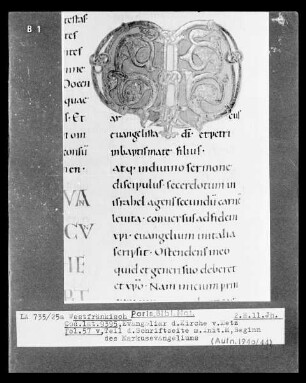 B 1
testas
tes
tes
me
Docen
quae
s. Et
tom
consũ
nen.
VA
CV
IE
euangelista dī. et petri
inbaptismate filius.
atq; indiuino sermone
discipulus. sacerdotium in
israhel agens secundū carnē
leuita. conuersus ad fidem
xpi. euangelium initalia
scripsit. Ostendens in eo
quid et generi suo deberet
et xpo. Nam initium prin
La 735/25a Westfränkisch Paris, Bibl. Nat.
Cod. lat. 9395, Evangeliar d. Kirche v. Metz
fol. 57 v, Teil d. Schriftseite m. Init. M, Beginn
des Markusevangeliums (Aufn. 1940/44)